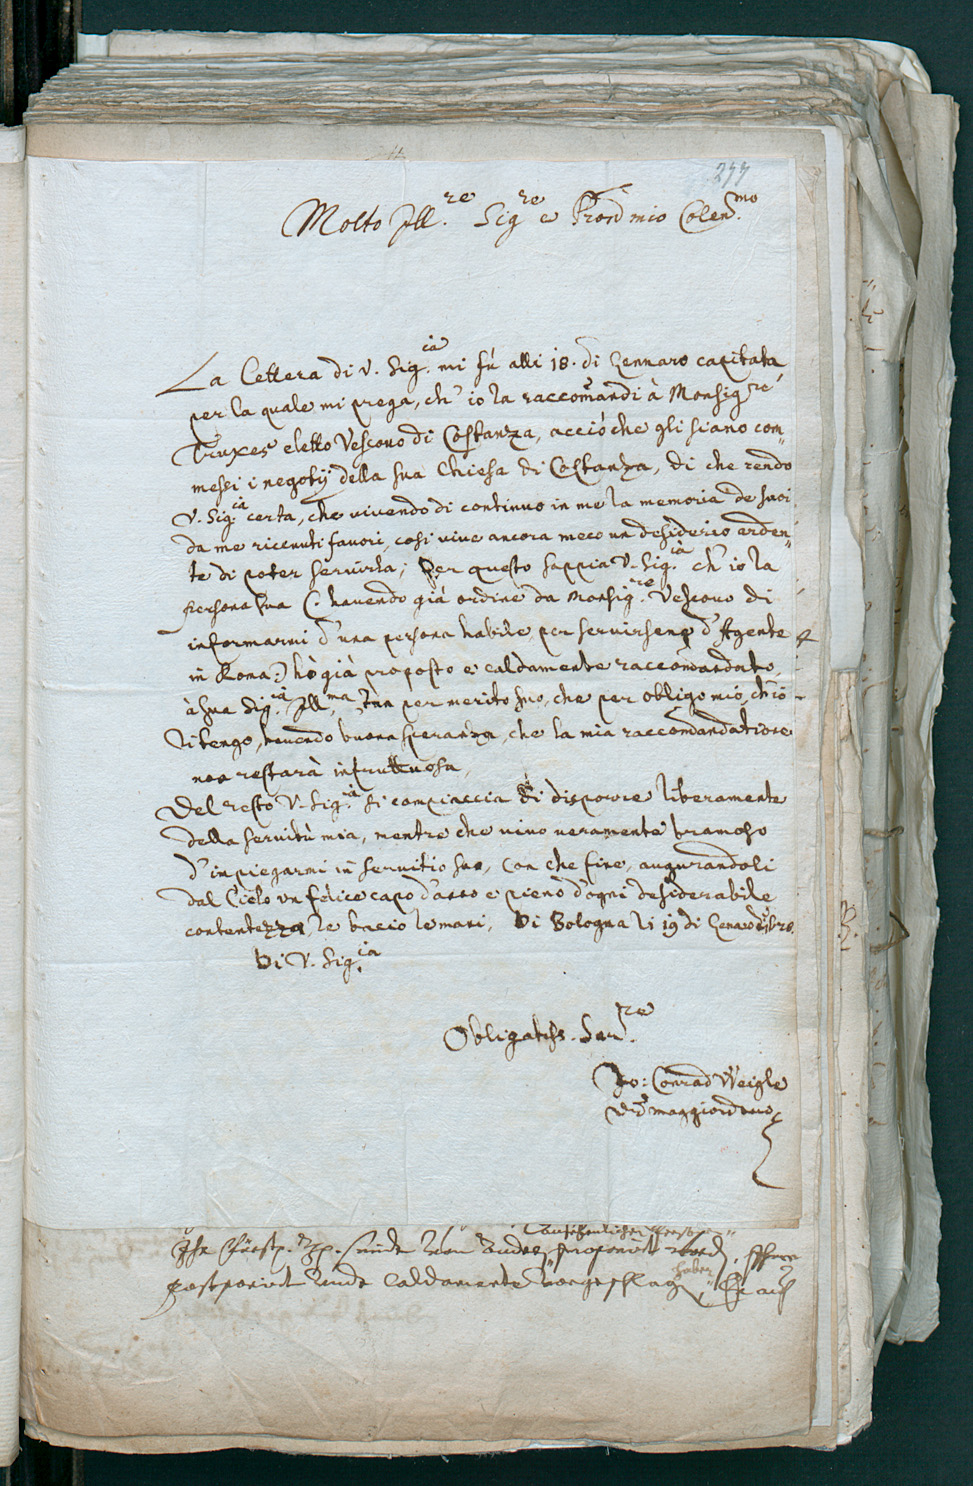 277
Molto Ill.re Sig.re e Pron mio Colen.mo
La lettera di V. Sig.ia mi fù alli 18. di Gennaro capitata
per la quale mi prega, ch' io la raccomandi à Monsig.re
Truxes eletto Vescovo di Costanza, acciò che gli siano com=
messi i negotÿ della sua Chiesa di Costanza, di che rendo
V. Sig.ia certa, che vivendo di continuo in me la memoria de suoi
da me ricevuti favori, cosi vive ancora meco un desiderio arden=
te di poter servirla; Per questo sappia V. Sig.ia ch' io la
persona sua (: havendo già ordine da Monsig.re Vescovo di
informarmi d'una persona habile per servirsene d'Agente
in Roma:) hò già proposto e caldamente raccomandato
à sua Sig.ia Ill.ma tan per merito suo, che per obligo mio, ch'io
li tengo, havendo buona speranza, che la mia raccomandatione
non restarà infruttuosa,
Del resto V. Sig.ia si compiaccia di disporre liberamente
della servitù mia, mentre che vivo veramente bramoso
d'impiegarmi in servitio suo, Con che fine, augurandoli
dal Cielo un felice capo d'anno e pieno d'ogni desiderabile
contentezza, le bacio le mani, Di Bologna li 19 di Genaro
Di V. Sig.ia
Obligatiss. Ser.re
Jo: Conrad Weigle
maggiordomo
proponirt
postponirt unde caldamente
haben